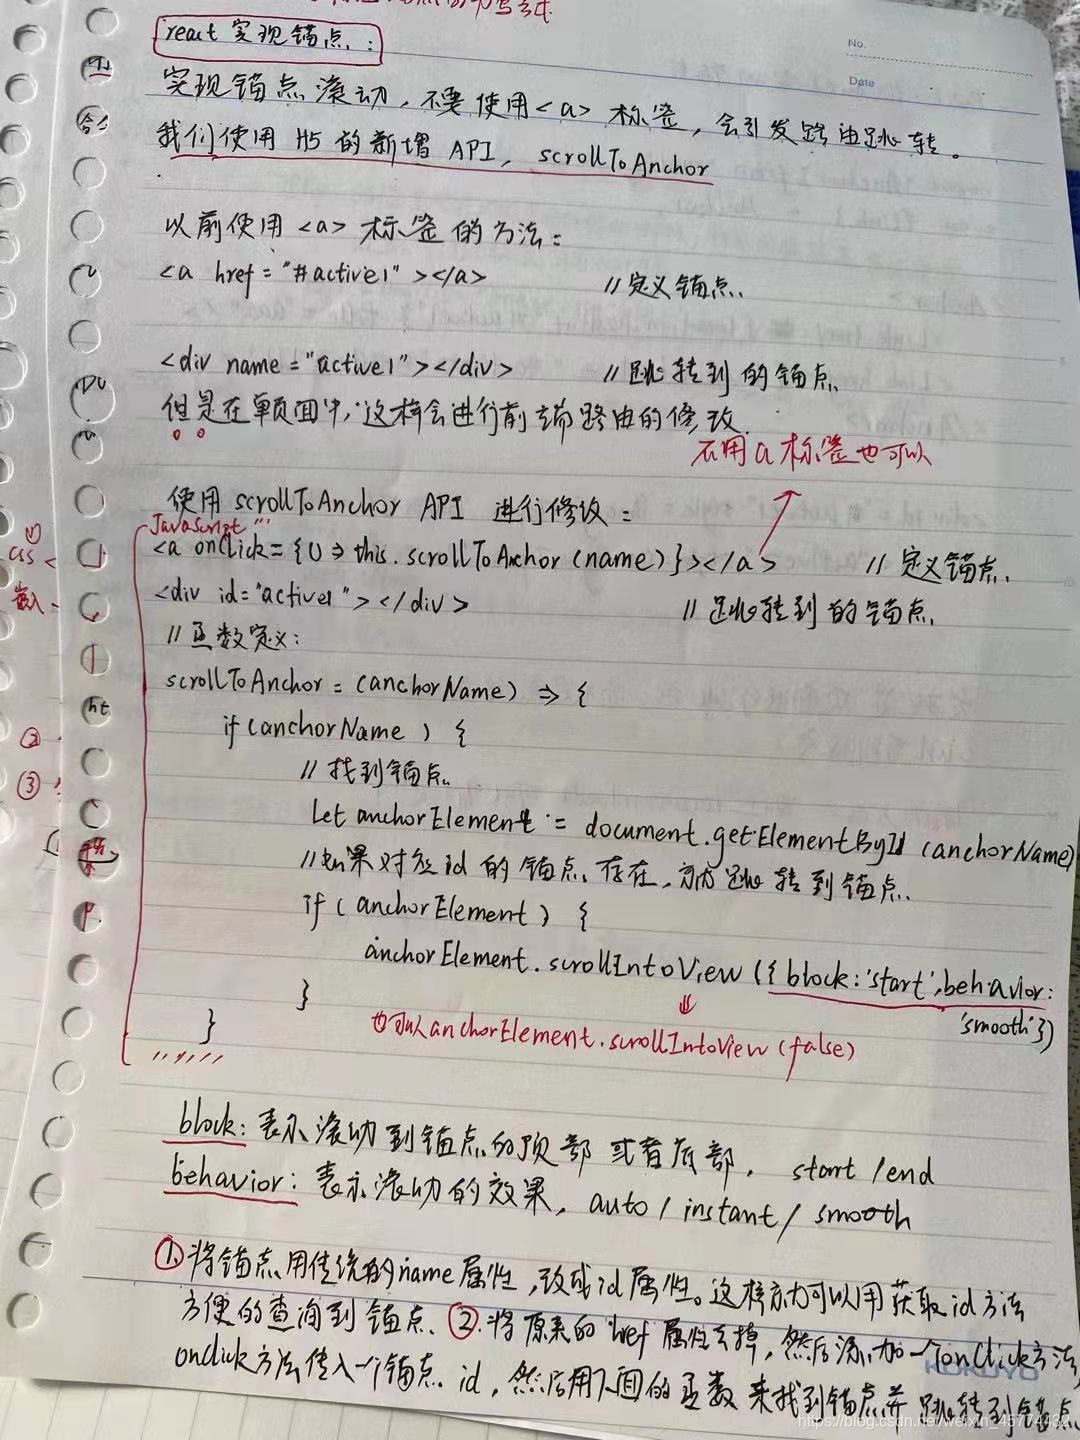 react 实现锚点:
No.
Date
实现锚点滚动,不要使用<a>标签,会引发路由跳转。
我们使用 H5 的新增 API, scrollToAnchor
以前使用<a>标签的方法:
<a href="#active1"></a> //定义锚点
<div name="active1"></div> //跳转到的锚点
但是在单页面中,这样会进行前端路由的修改.
不用a标签也可以
使用 scrollToAnchor API 进行修改:
JavaScript
<a onClick={()=>this.scrollToAnchor(name)}></a> //定义锚点
<div id="active1"></div> //跳转到的锚点
//函数定义:
scrollToAnchor = (anchorName) => {
if(anchorName) {
//找到锚点
Let anchorElement = document.getElementById(anchorName)
//如果对应id的锚点存在,就跳转到锚点
if(anchorElement) {
anchorElement.scrollIntoView({block:'start',behavior:
'smooth'})
}
也可以anchorElement.scrollIntoView(false)
}
block: 表示滚动到锚点的顶部或者底部, start/end
behavior: 表示滚动的效果, auto/instant/smooth
①将锚点用传统的name属性,改成id属性。这样就可以用获取id方法
方便的查询到锚点、②.将原来的href属性去掉,然后添加一个onClick方法,
onclick方法传入一个锚点id,然后用下面的函数来找到锚点并跳转到锚点
https://blog.csdn.net/weixin_45774432